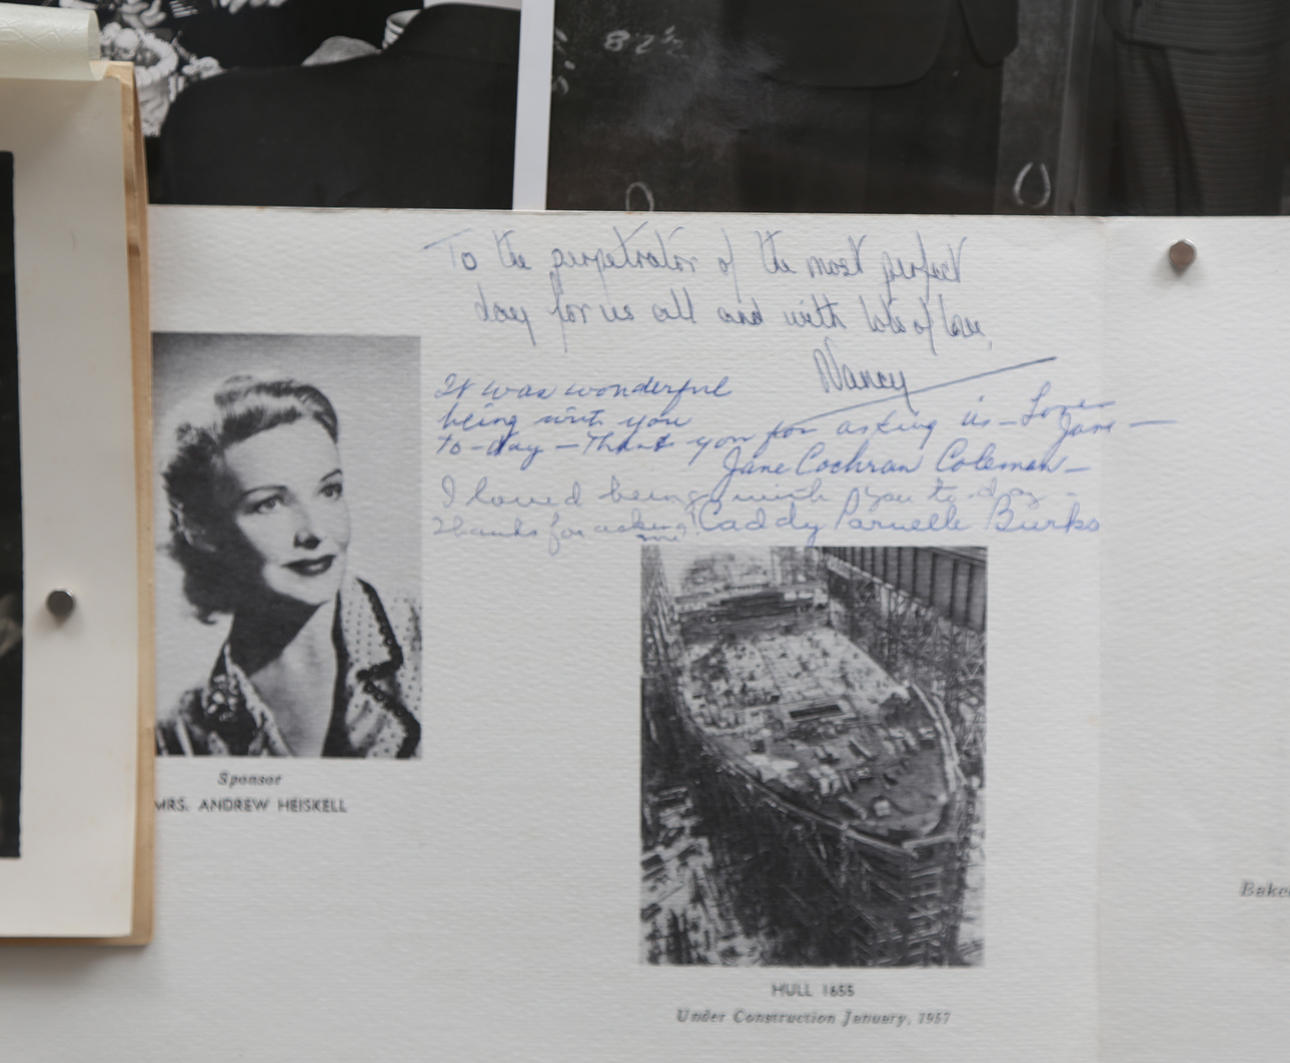 82½
To the perpetrator of the most perfect
day for us all and with lots of love,
Nancy
It was wonderful
being with you
to-day – Thank you for asking us – Love
Jane –
Jane Cochran Coleman –
I loved being with you to-day –
Thanks for asking me! Caddy Parnelle Burks
Sponsor
MRS. ANDREW HEISKELL
HULL 1655
Under Construction January, 1957